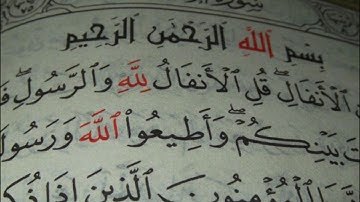 سورة
بِسْمِ اللَّهِ الرَّحْمَٰنِ الرَّحِيمِ
الْأَنفَالِ ۖ قُلِ الْأَنفَالُ لِلَّهِ وَالرَّسُولِ ۖ
بَيْنِكُمْ ۖ وَأَطِيعُوا اللَّهَ وَرَسُولَ
الْمُؤْمِنُونَ الَّذِينَ إِذَا ذُكِ